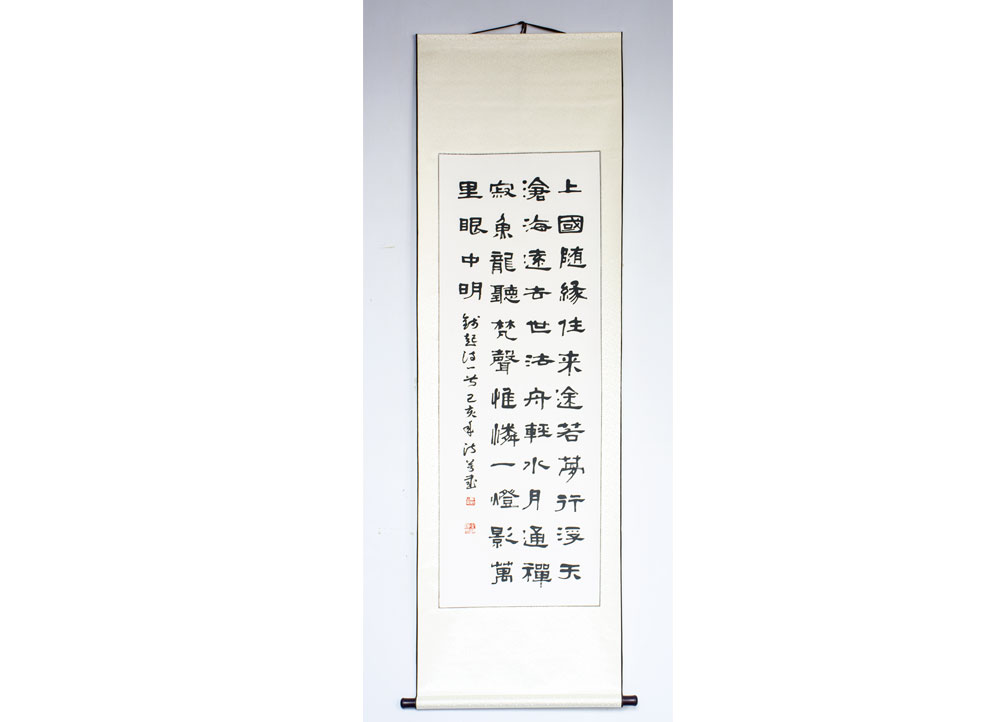 上國随緣住来途若夢行浮天
滄海遠去世法舟輕水月通禪
寂魚龍聽梵聲惟憐一燈影萬
里眼中明
钱起诗一首己亥年